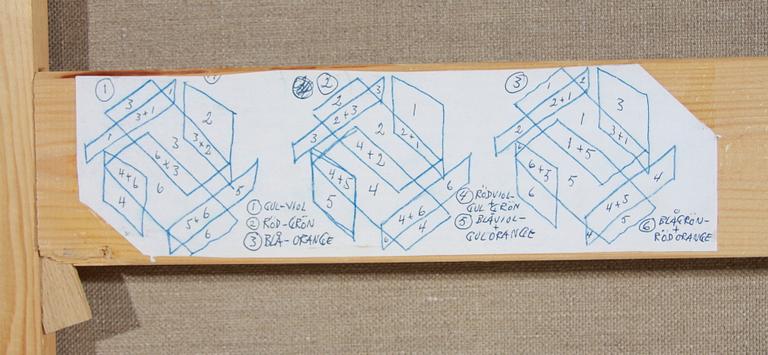 ① ② ③
3 1
3+1
2
1
3
3+2
6+3
6
4+6
4
5
5+6
6
2 3
2+3
1
3
2
2+1
4+2
4
4+5
5
6
4+6
4
6
1
2+1
3
2
1
3+1
1+5
5
6+3
6
4
4+5
5
4
① GUL-VIOL
② RÖD-GRÖN
③ BLÅ-ORANGE
④ RÖDVIOL-
GUL+GRÖN
⑤ BLÅVIOL-
+
GULORANGE
⑥ BLÅGRÖN-
+
RÖDORANGE